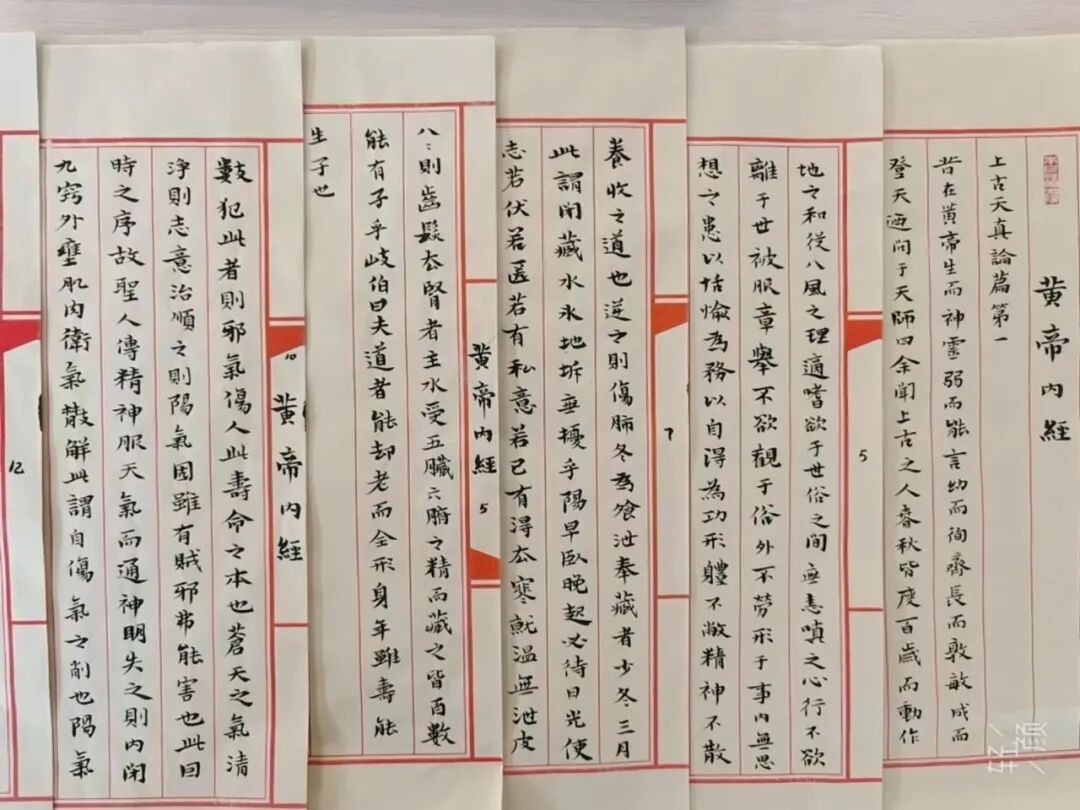 黄帝内經
上古天真論篇第一
昔在黄帝生而神靈弱而能言幼而徇齊長而敦敏成而
登天廼问于天师曰余聞上古之人春秋皆度百歲而動作
地之和從八風之理適嗜欲于世俗之间無恚嗔之心行不欲
離于世被服章舉不欲觀于俗外不劳形于事内無思
想之患以恬愉為務以自得為功形體不敝精神不散
5
養收之道也逆之則傷肺冬為飧泄奉藏者少冬三月
此謂闭藏水冰地坼無擾乎陽早卧晚起必待日光使
志若伏若匿若有私意若已有得去寒就温無泄皮
7
八八則齒髮去腎者主水受五臟六腑之精而藏之皆百數
能有子乎岐伯曰夫道者能却老而全形身年雖壽能
生子也
黄帝内經
5
數犯此者則邪氣傷人此壽命之本也蒼天之氣清
净則志意治順之則陽氣固雖有賊邪弗能害也此因
時之序故聖人傳精神服天氣而通神明失之則内闭
九窍外壅肌肉衛氣散解此謂自傷氣之削也陽氣
10
黄帝内經
12